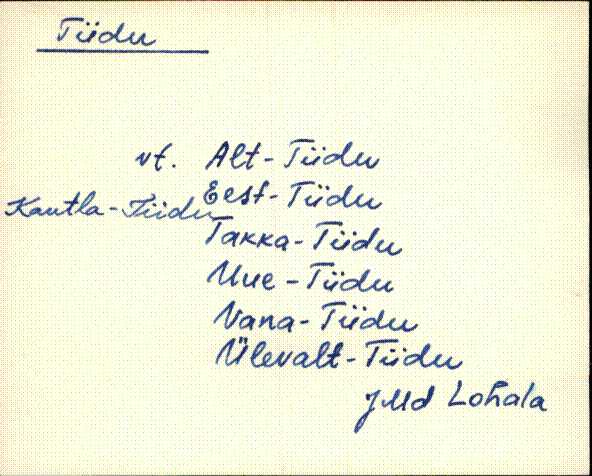 Tiidu
vt. Alt-Tiidu
Eest-Tiidu
Kautla-Tiidu
Takka-Tiidu
Uue-Tiidu
Vana-Tiidu
Ülevalt-Tiidu
JMd Lohala